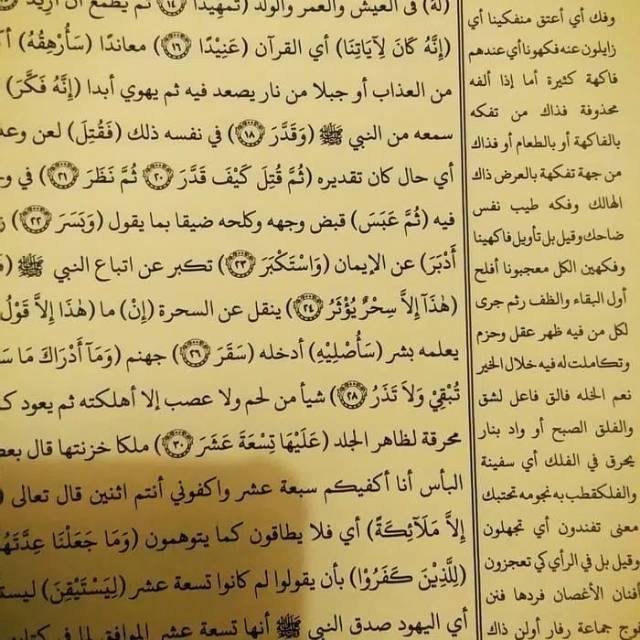 لَهُ) فى العيش والعمر والولد (تَمْهِيدًا ﴿١٤﴾ ثُمَّ يَطْمَعُ أَنْ أَزِيدَ
(إِنَّهُ كَانَ لِآيَاتِنَا) أي القرآن (عَنِيْدًا ﴿١٦﴾) معاندا (سَأُرْهِقُهُ)
من العذاب أو جبلا من نار يصعد فيه ثم يهوي أبدا (إِنَّهُ فَكَّرَ)
سمعه من النبي ﷺ (وَقَدَّرَ ﴿١٨﴾) في نفسه ذلك (فَقُتِلَ) لعن
أي حال كان تقديره (ثُمَّ قُتِلَ كَيْفَ قَدَّرَ ﴿٢٠﴾ ثُمَّ نَظَرَ ﴿٢١﴾) في
فيه (ثُمَّ عَبَسَ) قبض وجهه وكلحه ضيقا بما يقول (وَبَسَرَ ﴿٢٢﴾)
أَدْبَرَ) عن الإيمان (وَاسْتَكْبَرَ ﴿٢٣﴾) تكبر عن اتباع النبي ﷺ
(هٰذَآ إِلاَّ سِحْرٌ يُؤْثَرُ ﴿٢٤﴾) ينقل عن السحرة (إِنْ) ما (هٰذَا إِلاَّ قَوْلُ
يعلمه بشر (سَأُصْلِيْهِ) أدخله (سَقَرَ ﴿٢٦﴾) جهنم (وَمَآ أَدْرَاكَ مَا
تُبْقِيْ وَلاَ تَذَرُ ﴿٢٨﴾) شيأ من لحم ولا عصب إلا أهلكته ثم يعود
محرقة لظاهر الجلد (عَلَيْهَا تِسْعَةَ عَشَرَ ﴿٣٠﴾) ملكا خزنتها قال
البأس أنا أكفيكم سبعة عشر واكفوني أنتم اثنين قال تعالى
إِلاَّ مَلَآئِكَةً) أي فلا يطاقون كما يتوهمون (وَمَا جَعَلْنَا عِدَّتَهُ
(لِلَّذِيْنَ كَفَرُوْا) بأن يقولوا لم كانوا تسعة عشر (لِيَسْتَيْقِنَ)
أي اليهود صدق النبي ﷺ أنها تسعة عشر الموافق لما في
وفك أي أعتق منفكينا أي
زايلون عنه فكهونا أي عندهم
فاكهة كثيرة أما إذا ألفه
محذوفة فذاك من تفكه
بالفاكهة أو بالطعام أو فذاك
من جهة تفكهة بالعرض ذاك
الهالك وفكه طيب نفس
ضاحك وقيل بل تأويل فاكهينا
وفكهين الكل معجبونا أفلح
أول البقاء والظف رثم جرى
لكل من فيه ظهر عقل وحزم
وتكاملت له فيه خلال الخير
نعم الخله فالق فاعل لشق
والفلق الصبح أو واد بنار
يحرق في الفلك أي سفينة
والفلك قطب به نجومه تحتبك
معنى تفندون أي تجهلون
وقيل بل في الرأي كي تعجزون
أفنان الأغصان فردها فنن
فوج جماعة رفار أولن ذاك